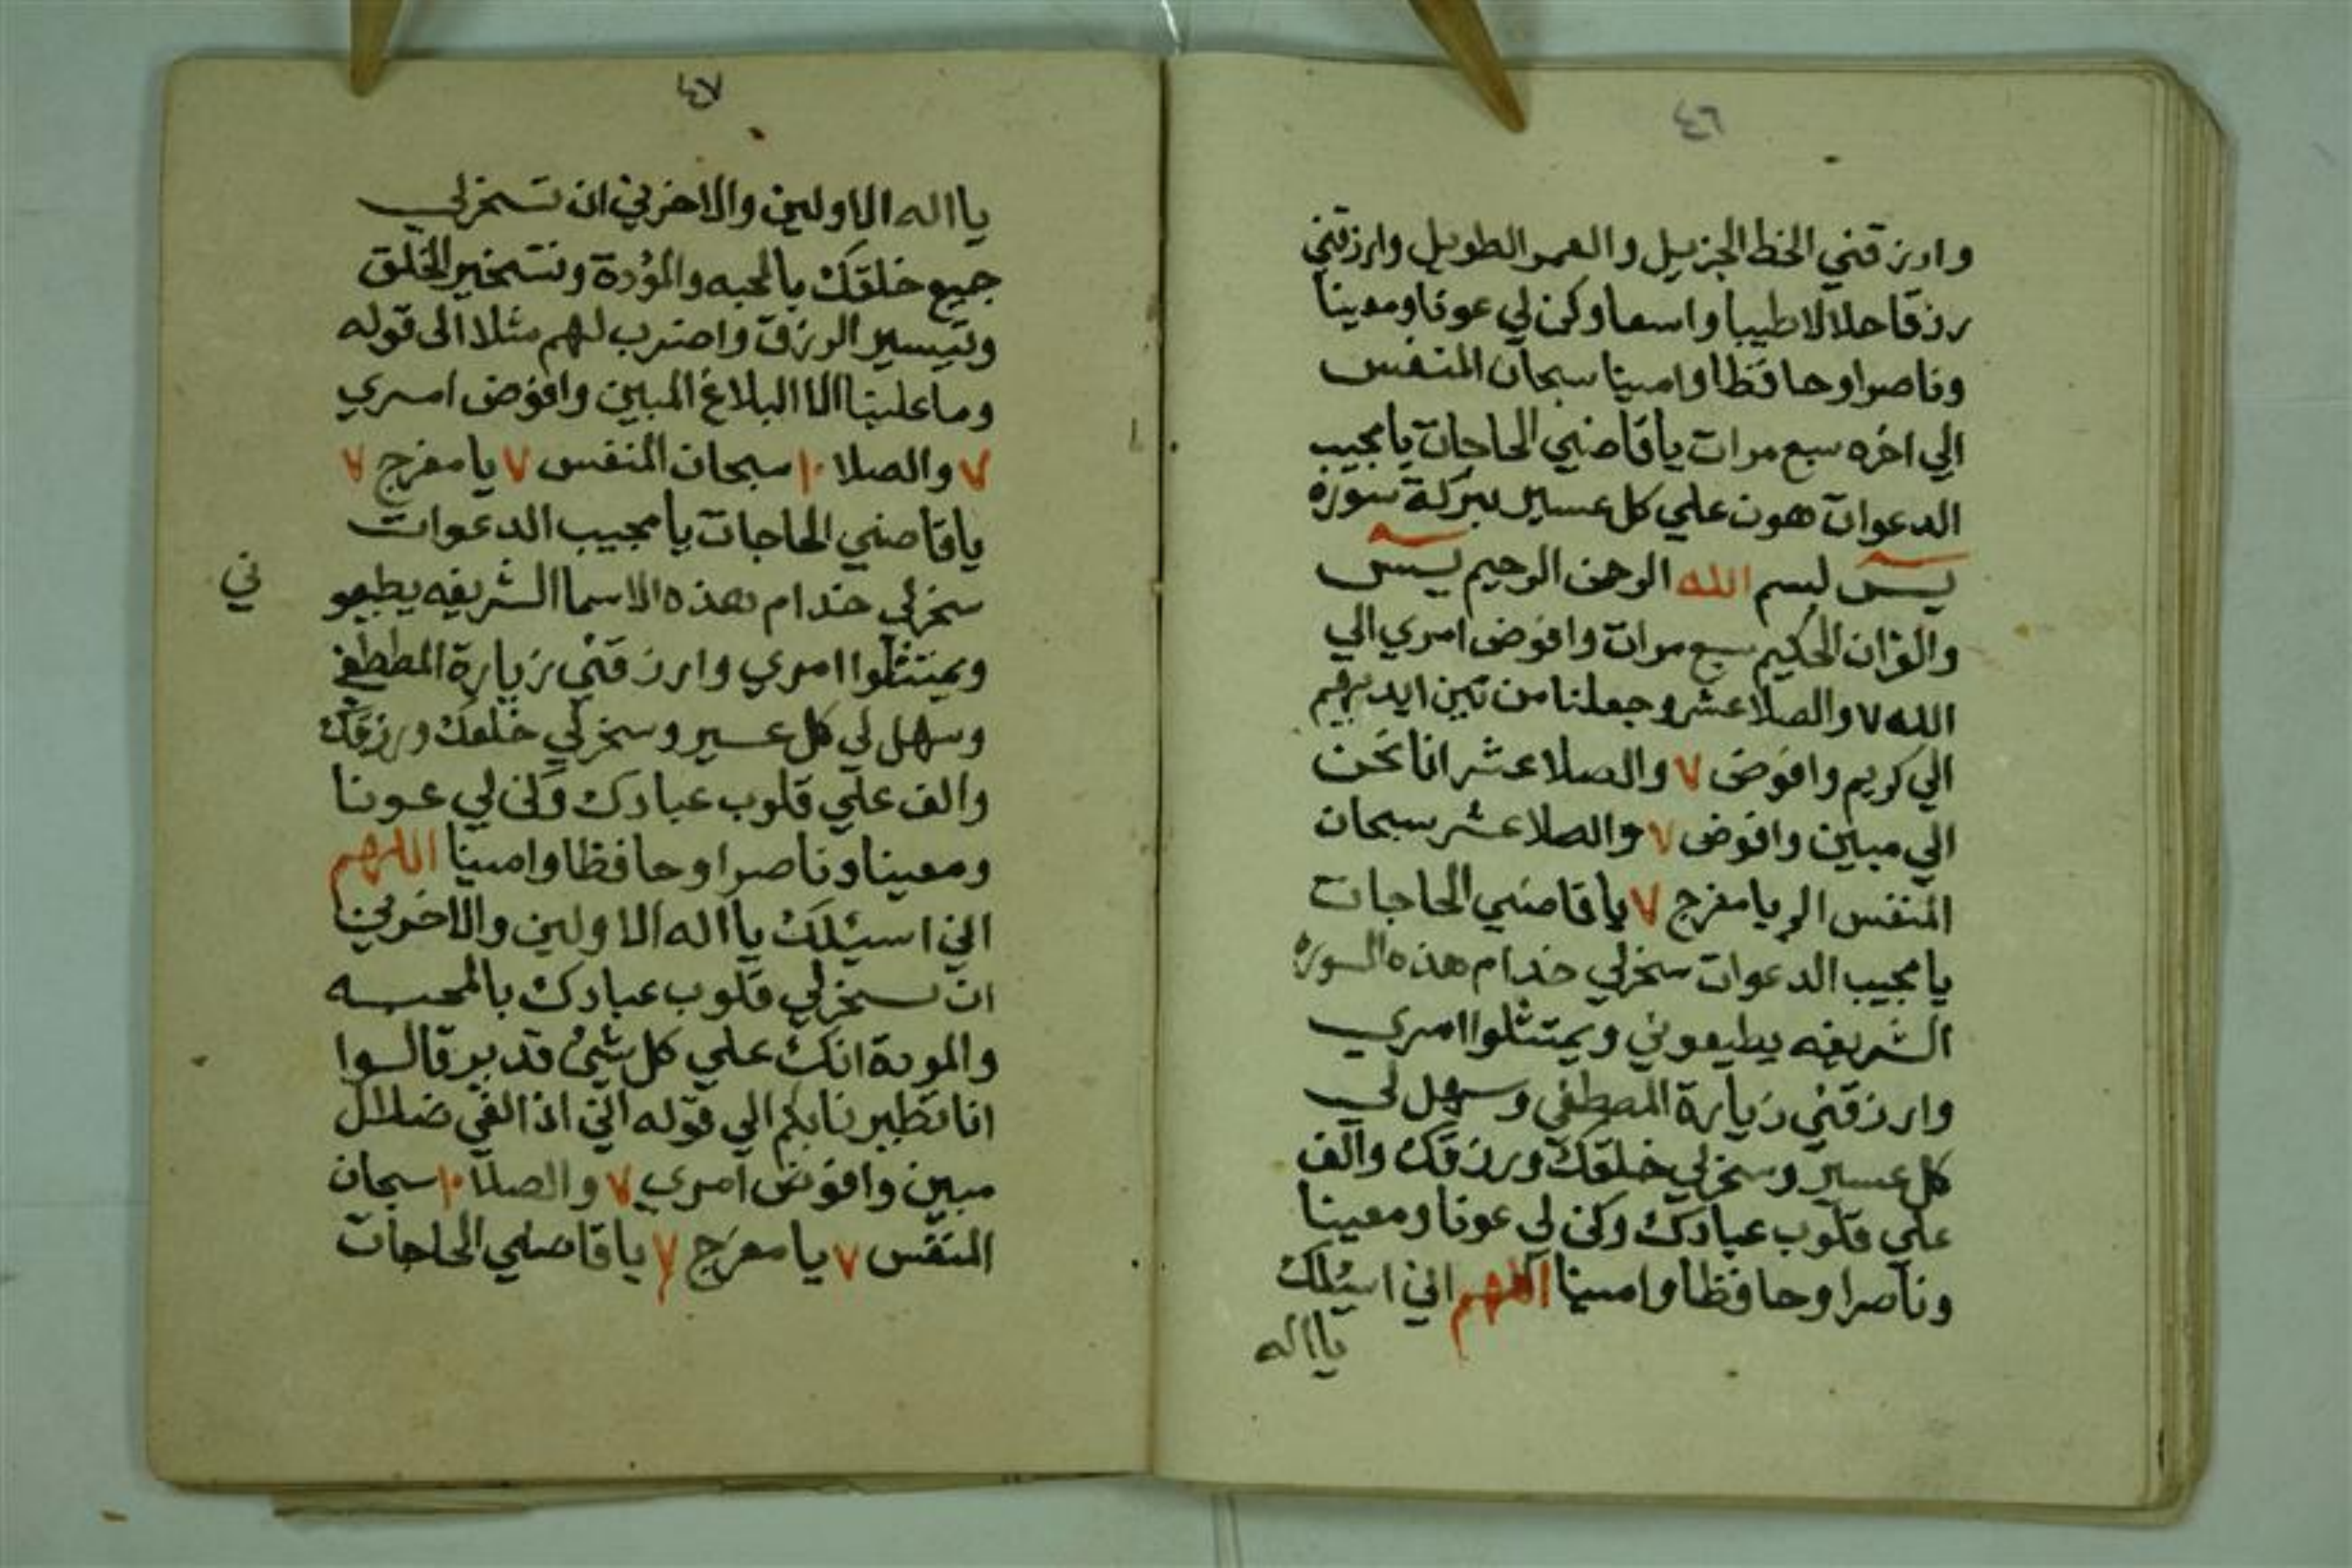 ٤٦
وارزقني الحظ الجزيل والعمر الطويل وارزقني
رزقا حلالا طيبا واسعا وكن لي عونا ومعينا
وناصرا وحافظا وامينا سبحان المنفس
الي اخره سبع مرات يا قاضي الحاجات يا مجيب
الدعوات هون علي كل عسير ببركة سورة
يس بسم الله الرحمن الرحيم يس
والقران الحكيم سبع مرات وافوض امري الي
الله ٧ والصلا عشر وجعلنا من بين ايديهم
الي كريم وافوض ٧ والصلا عشر انا نحن
الي مبين وافوض ٧ والصلا عشر سبحان
المنفس الخ يا مفرج ٧ يا قاضي الحاجات
يا مجيب الدعوات سخر لي خدام هذه السورة
الشريفه يطيعوني ويمتثلوا امري
وارزقني زيارة المصطفي وسهل لي
كل عسير وسخر لي خلقك ورزقك والف
علي قلوب عبادك وكن لي عونا ومعينا
وناصرا وحافظا وامينا اللهم اني اسئلك
يا اله
٤٧
يا اله الاولين والاخرين ان تسخر لي
جميع خلقك بالمحبه والمؤدة وتسخير الخلق
وتيسير الرزق واضرب لهم مثلا الى قوله
وما علينا الا البلاغ المبين وافوض امري
٧ والصلا ١٠ سبحان المنفس ٧ يا مفرج ٧
يا قاضي الحاجات يا مجيب الدعوات
سخر لي خدام هذه الاسما الشريفه يطيعو
ني
ويمتثلوا امري وارزقني زيارة المطصفي
وسهل لي كل عسير وسخر لي خلقك ورزقك
والف علي قلوب عبادك وكن لي عونا
ومعينا وناصرا وحافظا وامينا اللهم
اني اسئلك يا اله الاولين والاخرين
ان تسخر لي قلوب عبادك بالمحبه
والمودة انك علي كل شئ قدير قالوا
انا تطيرنا بكم الي قوله اني اذا لفي ضلال
مبين وافوض امري ٧ والصلا ١٠ سبحان
المنفس ٧ يا مفرج ٧ يا قاضي الحاجات